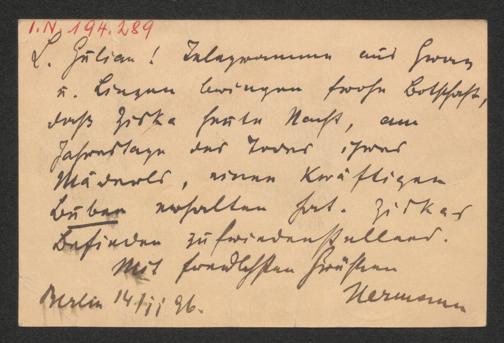 I.N. 194.289
L. Julian! Telegramme aus Graz
u. Lingen bringen frohe Botschaft,
daß Ziska heute Nacht, am
Jahrestage des Todes ihres
Mäderls, einen kräftigen
Buben erhalten hat. Ziskas
Befinden zufriedenstellend.
Mit freundlichsten Grüßen
Berlin 14/II 96. Hermann